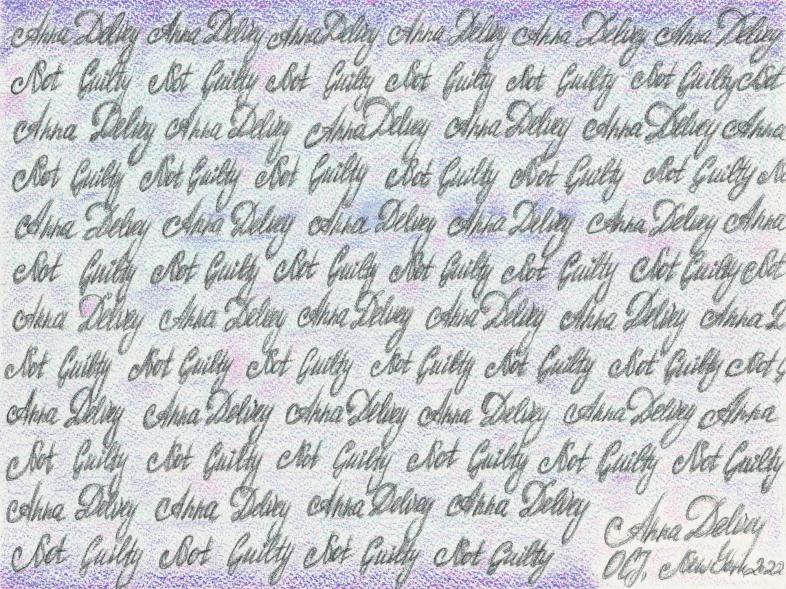 Anna Delvey Anna Delvey Anna Delvey Anna Delvey Anna Delvey Anna Delvey
Not Guilty Not Guilty Not Guilty Not Guilty Not Guilty Not Guilty Not
Anna Delvey Anna Delvey Anna Delvey Anna Delvey Anna Delvey Anna
Not Guilty Not Guilty Not Guilty Not Guilty Not Guilty Not Guilty No
Anna Delvey Anna Delvey Anna Delvey Anna Delvey Anna Delvey Anna
Not Guilty Not Guilty Not Guilty Not Guilty Not Guilty Not Guilty Not
Anna Delvey Anna Delvey Anna Delvey Anna Delvey Anna Delvey Anna D
Not Guilty Not Guilty Not Guilty Not Guilty Not Guilty Not Guilty Not G
Anna Delvey Anna Delvey Anna Delvey Anna Delvey Anna Delvey Anna
Not Guilty Not Guilty Not Guilty Not Guilty Not Guilty Not Guilty
Anna Delvey Anna Delvey Anna Delvey Anna Delvey
Not Guilty Not Guilty Not Guilty Not Guilty
Anna Delvey
OCJ, New York 2022